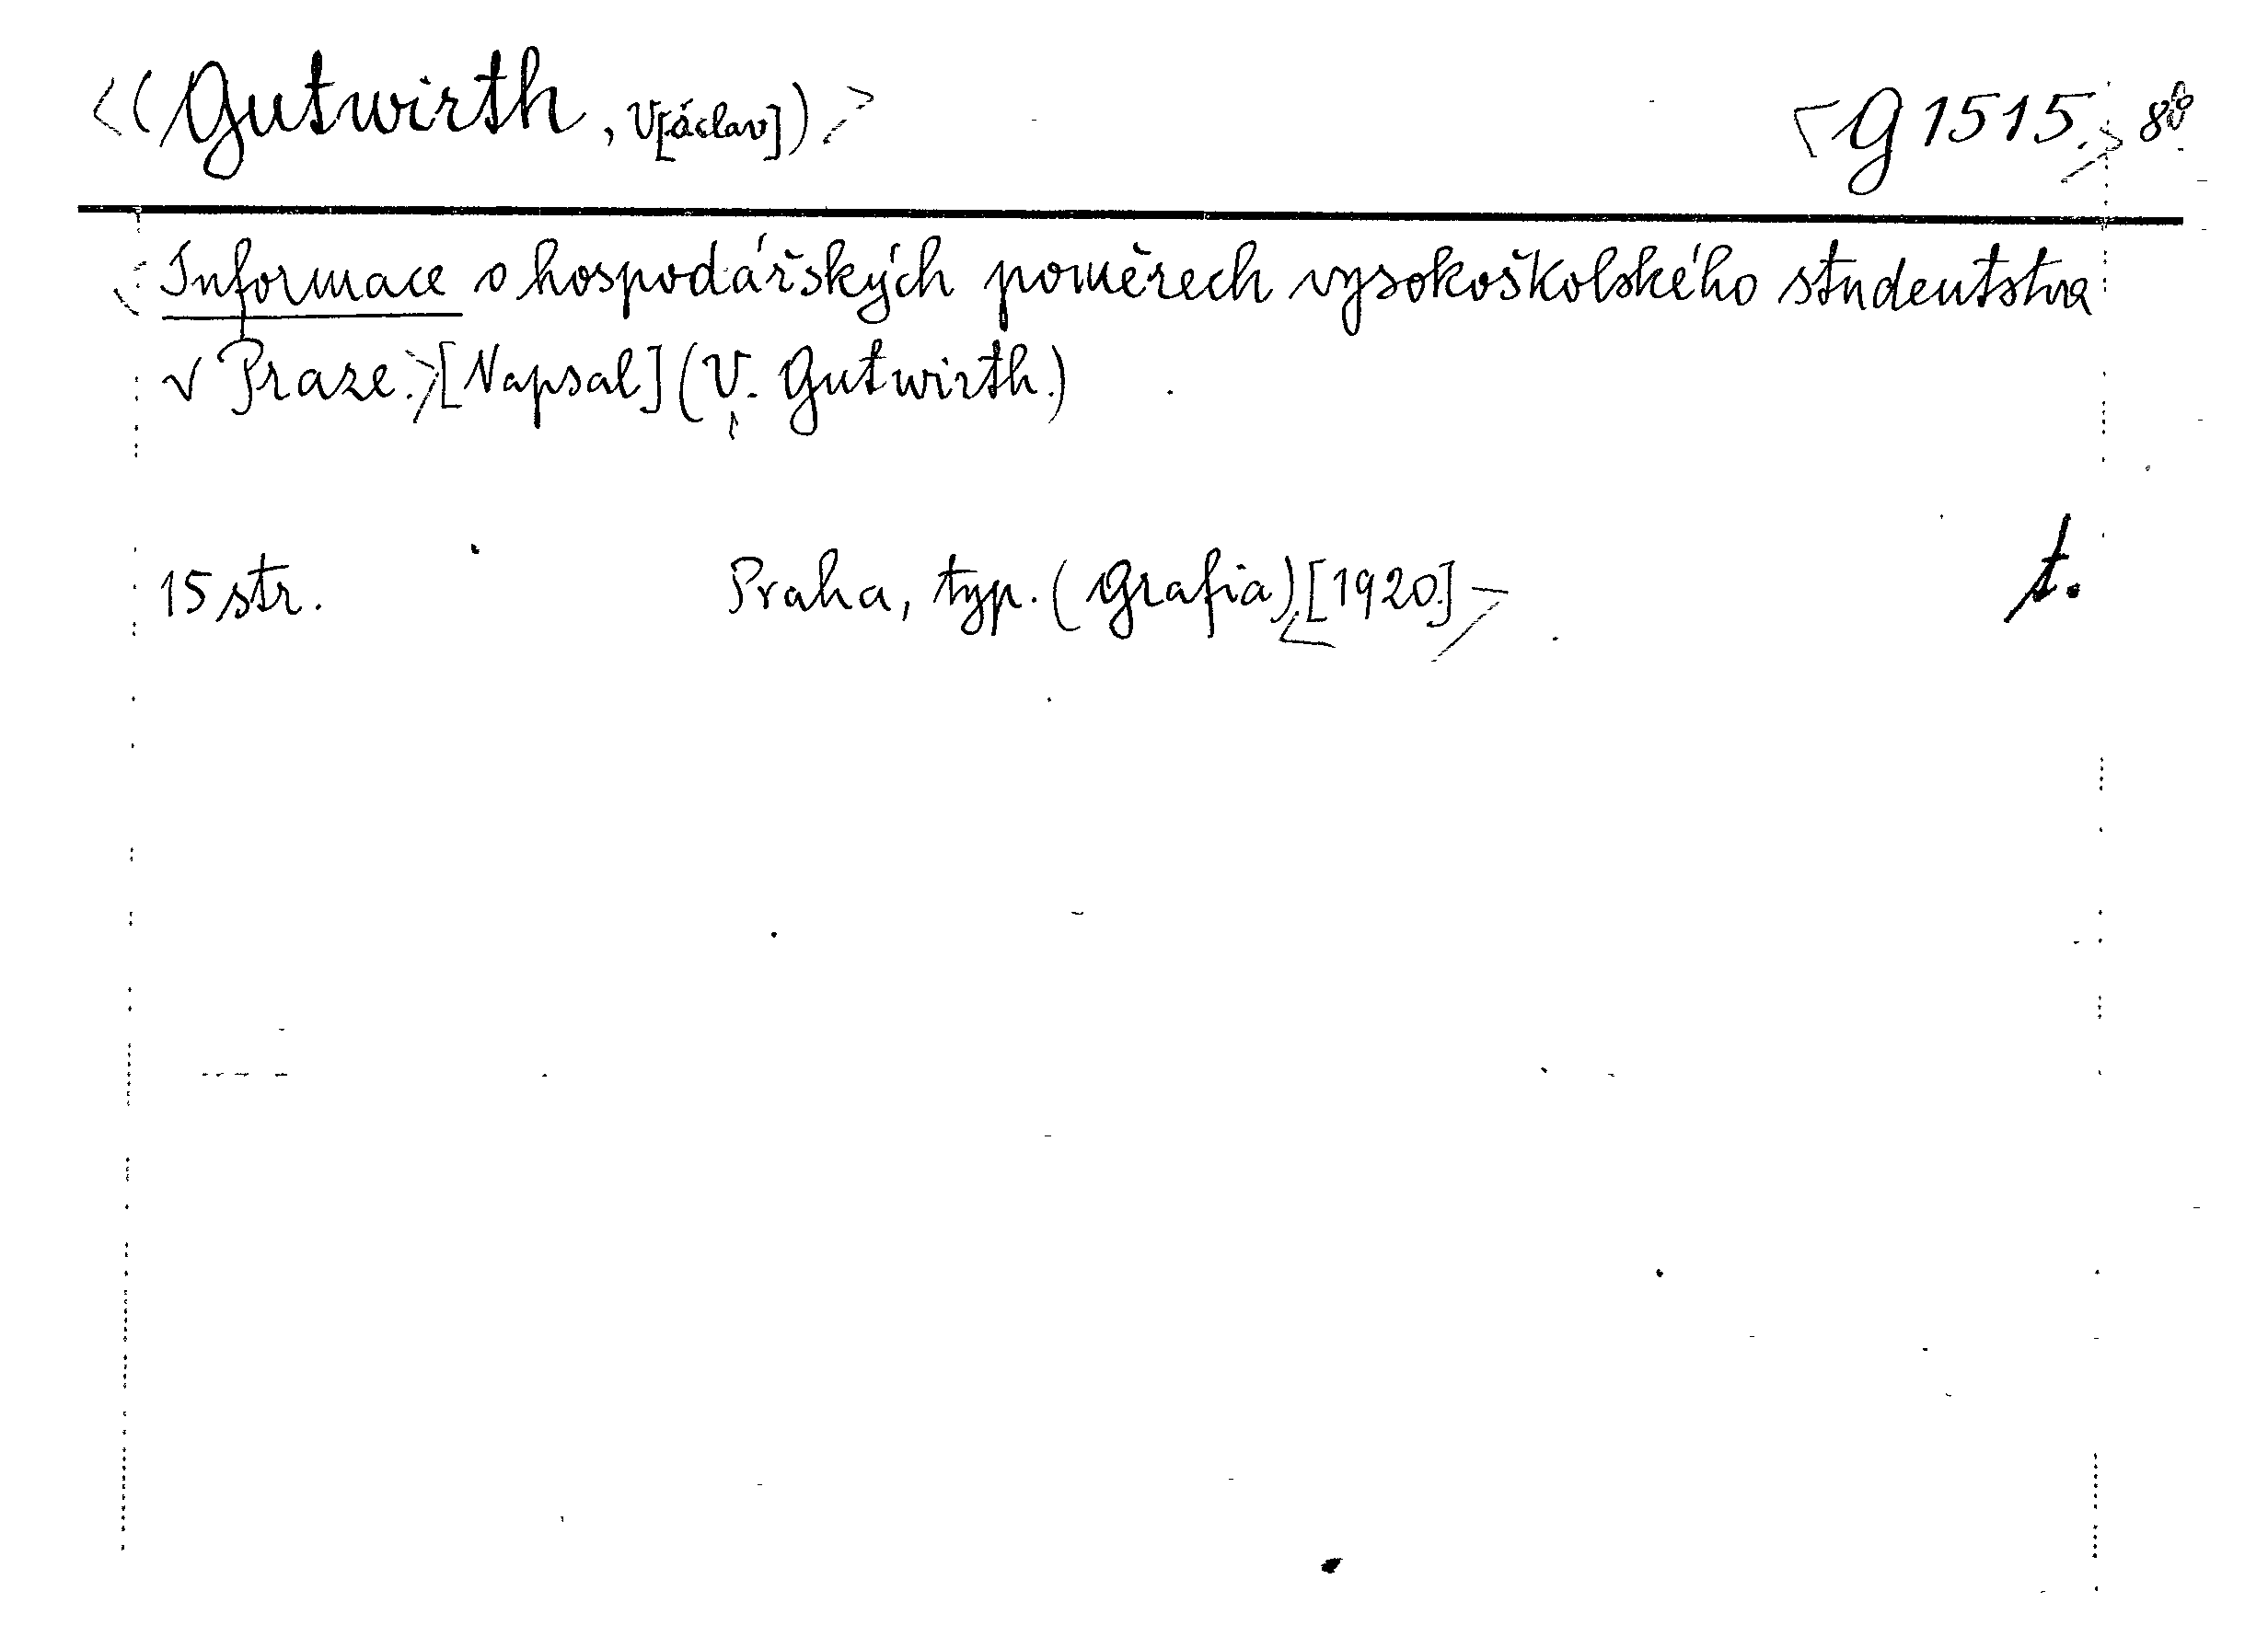 <(Gutwirth, V[áclav])> <G 1515.> 8°
<Informace o hospodářských poměrech vysokoškolského studentstva
v Praze.>[Napsal] (V. Gutwirth.)
15 str. Praha, typ. (Grafia)<[1920.]> t.